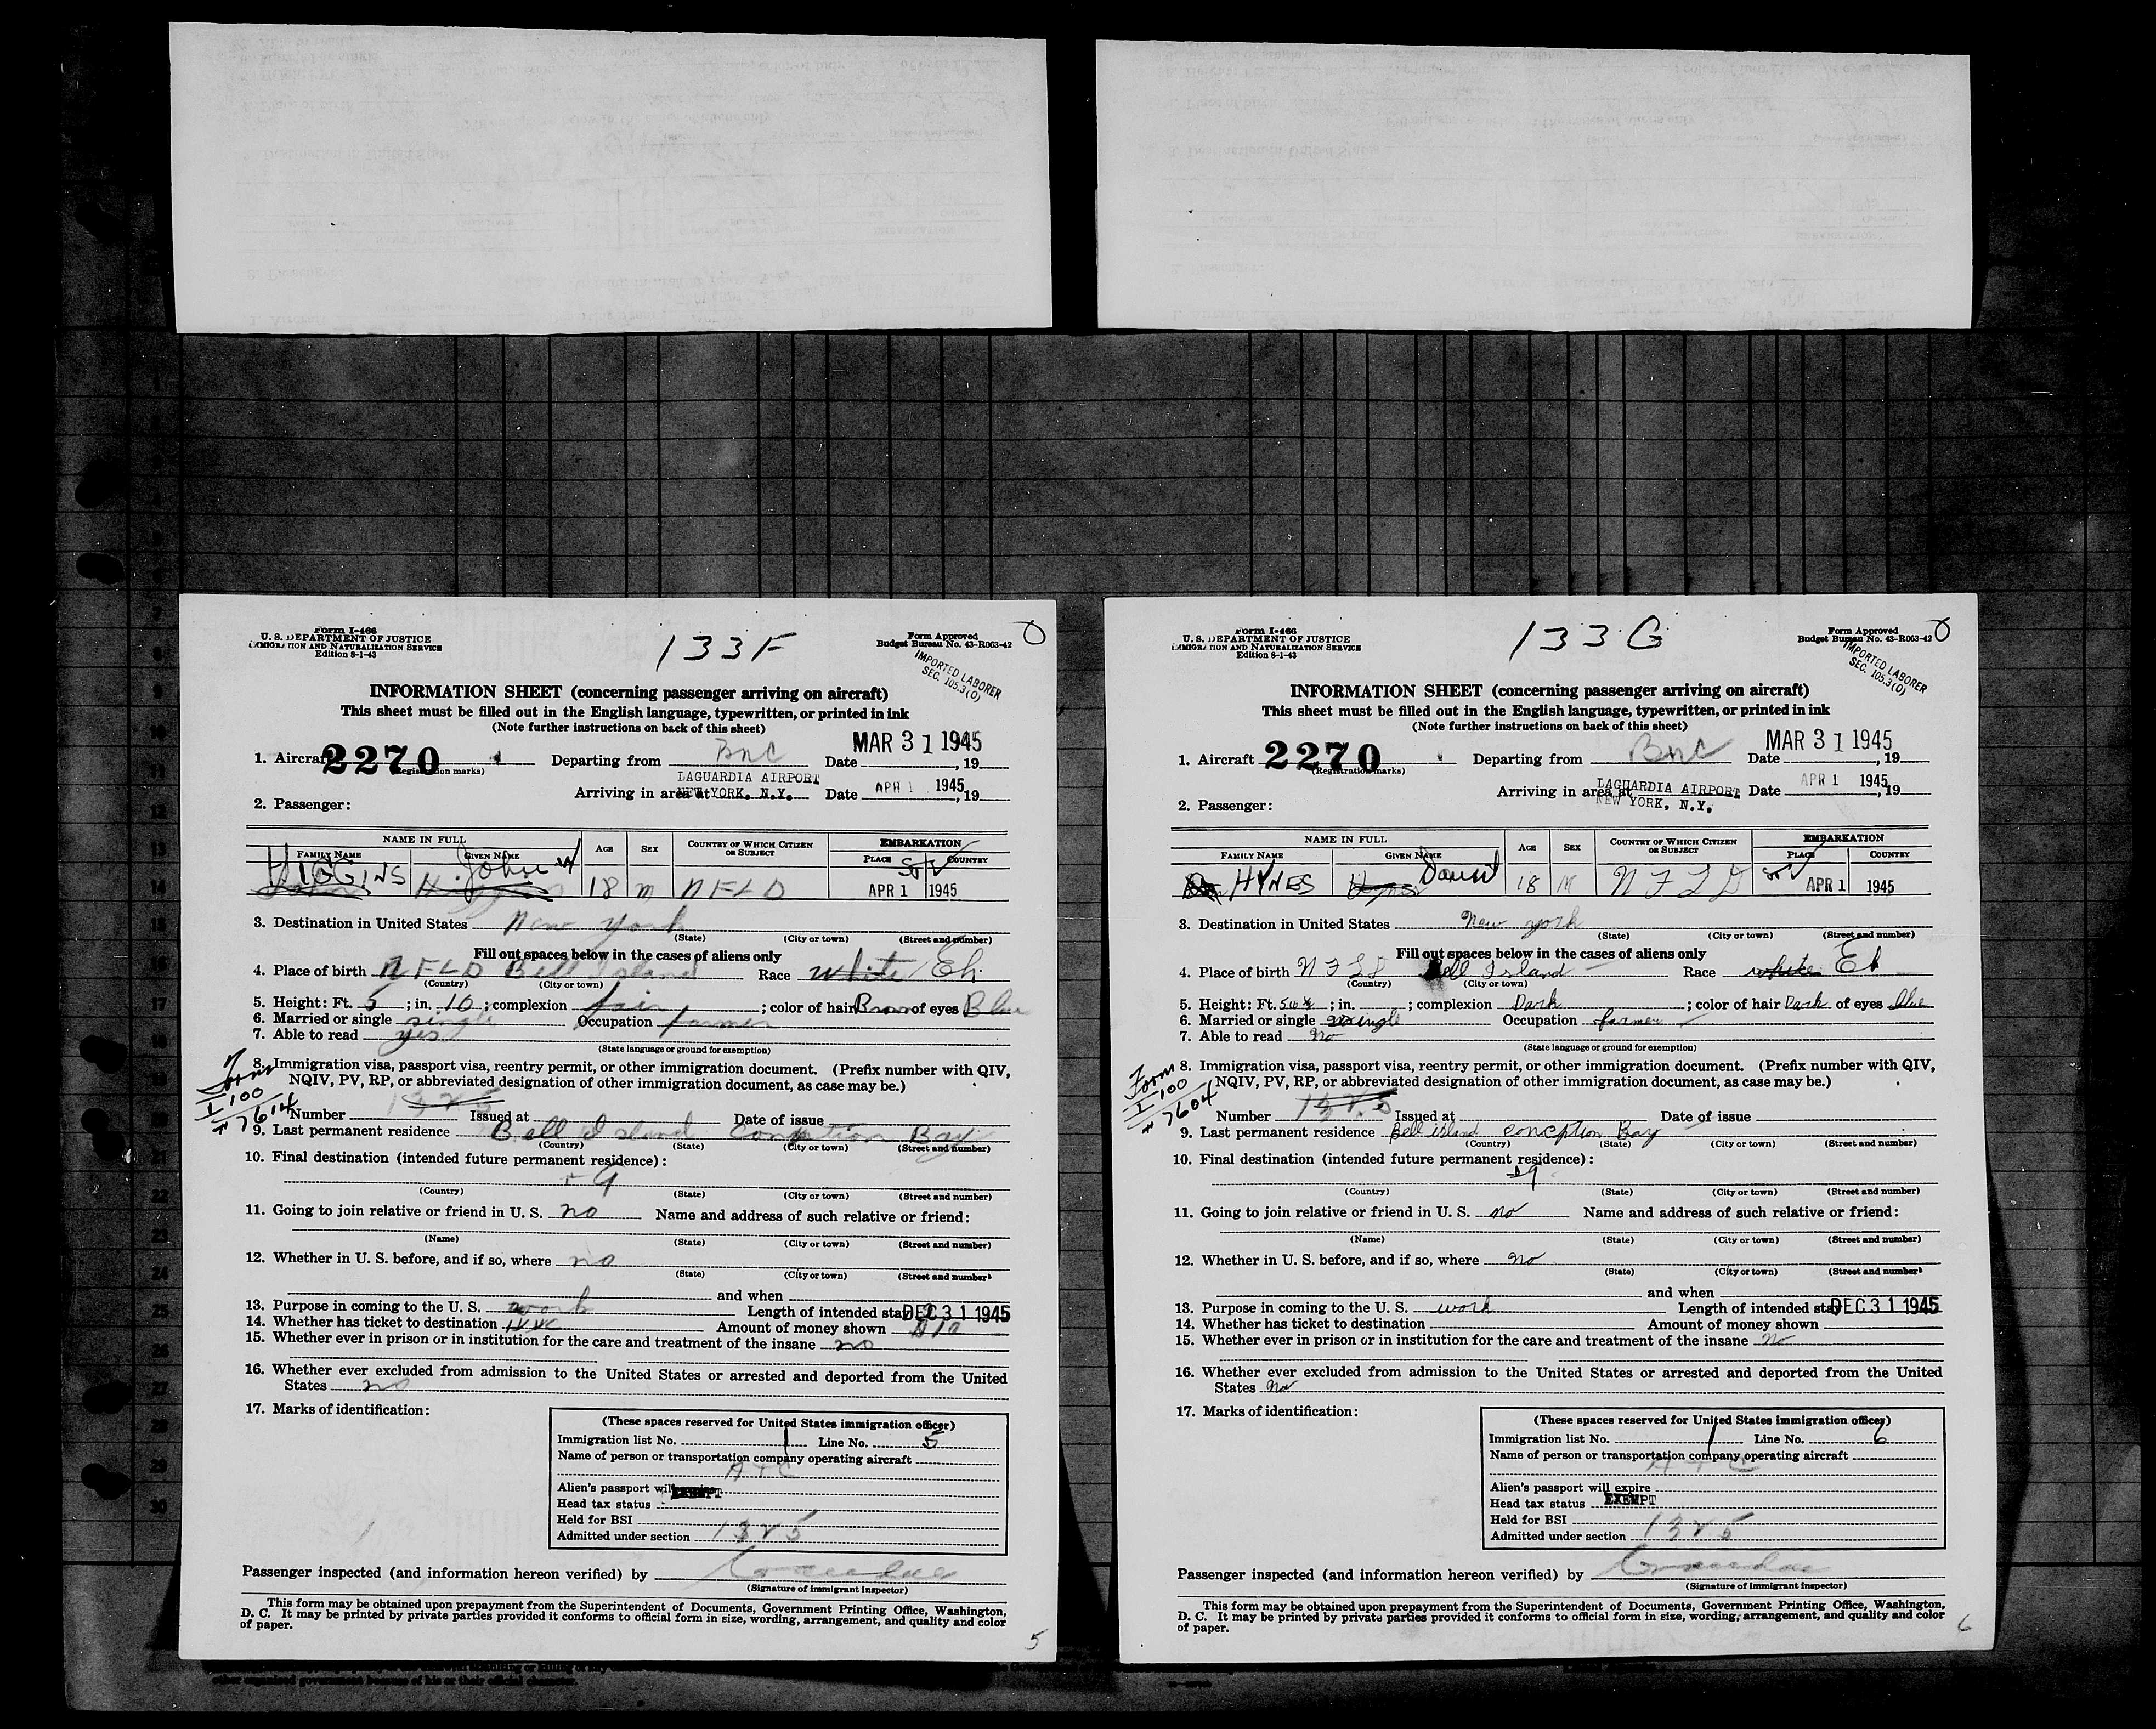 Form I-466
U. S. DEPARTMENT OF JUSTICE
IMMIGRATION AND NATURALIZATION SERVICE
Edition 8-1-43
133F
Form Approved
Budget Bureau No. 43-R063-42
IMPORTED LABORER
SEC. 105.3(O)
INFORMATION SHEET (concerning passenger arriving on aircraft)
This sheet must be filled out in the English language, typewritten, or printed in ink
(Note further instructions on back of this sheet)
MAR 31 1945
1. Aircraft 2270 Departing from BNC Date , 19
(Registration marks)
LAGUARDIA AIRPORT
Arriving in area at NEW YORK, N.Y. Date APR 1 1945, 19
2. Passenger:
NAME IN FULL AGE SEX COUNTRY OF WHICH CITIZEN OR SUBJECT EMBARKATION
FAMILY NAME GIVEN NAME PLACE COUNTRY
HIGGINS John W 18 M NFLD APR 1 1945
3. Destination in United States New York
(State) (City or town) (Street and number)
Fill out spaces below in the cases of aliens only
4. Place of birth NFLD Bell Island Race white
(Country) (City or town)
5. Height: Ft. 5 ; in. 10 ; complexion fair ; color of hair Brown of eyes Blue
6. Married or single single Occupation farmer
7. Able to read yes
(State language or ground for exemption)
8. Immigration visa, passport visa, reentry permit, or other immigration document. (Prefix number with QIV,
NQIV, PV, RP, or abbreviated designation of other immigration document, as case may be.)
Form
I 100
7614
Number 1325 Issued at Date of issue
9. Last permanent residence Bell Island Conception Bay
(Country) (State) (City or town) (Street and number)
10. Final destination (intended future permanent residence):
(Country) (State) (City or town) (Street and number)
11. Going to join relative or friend in U. S. no Name and address of such relative or friend:
(Name) (State) (City or town) (Street and number)
12. Whether in U. S. before, and if so, where no
(State) (City or town) (Street and number)
and when
13. Purpose in coming to the U. S. work Length of intended stay DEC 31 1945
14. Whether has ticket to destination Amount of money shown
15. Whether ever in prison or in institution for the care and treatment of the insane no
16. Whether ever excluded from admission to the United States or arrested and deported from the United
States no
17. Marks of identification:
(These spaces reserved for United States immigration officer)
Immigration list No. 1 Line No. 5
Name of person or transportation company operating aircraft
ATC
Alien's passport will expire
EXEMPT
Head tax status
Held for BSI
Admitted under section 1325
Passenger inspected (and information hereon verified) by
(Signature of immigrant inspector)
This form may be obtained upon prepayment from the Superintendent of Documents, Government Printing Office, Washington,
D. C. It may be printed by private parties provided it conforms to official form in size, wording, arrangement, and quality and color
of paper.
5
Form I-466
U. S. DEPARTMENT OF JUSTICE
IMMIGRATION AND NATURALIZATION SERVICE
Edition 8-1-43
133G
Form Approved
Budget Bureau No. 43-R063-42
IMPORTED LABORER
SEC. 105.3(O)
INFORMATION SHEET (concerning passenger arriving on aircraft)
This sheet must be filled out in the English language, typewritten, or printed in ink
(Note further instructions on back of this sheet)
MAR 31 1945
1. Aircraft 2270 Departing from BNC Date , 19
(Registration marks)
LAGUARDIA AIRPORT
Arriving in area at NEW YORK, N.Y. Date APR 1 1945, 19
2. Passenger:
NAME IN FULL AGE SEX COUNTRY OF WHICH CITIZEN OR SUBJECT EMBARKATION
FAMILY NAME GIVEN NAME PLACE COUNTRY
HYNES 18 M NFLD APR 1 1945
3. Destination in United States New york
(State) (City or town) (Street and number)
Fill out spaces below in the cases of aliens only
4. Place of birth NFLD Bell Island Race white
(Country) (City or town)
5. Height: Ft. ; in. ; complexion Dark ; color of hair Dark of eyes blue
6. Married or single single Occupation farmer
7. Able to read no
(State language or ground for exemption)
8. Immigration visa, passport visa, reentry permit, or other immigration document. (Prefix number with QIV,
NQIV, PV, RP, or abbreviated designation of other immigration document, as case may be.)
Form
I 100
7604
Number 1325 Issued at Date of issue
9. Last permanent residence Bell island conception Bay
(Country) (State) (City or town) (Street and number)
10. Final destination (intended future permanent residence):
(Country) (State) (City or town) (Street and number)
11. Going to join relative or friend in U. S. no Name and address of such relative or friend:
(Name) (State) (City or town) (Street and number)
12. Whether in U. S. before, and if so, where no
(State) (City or town) (Street and number)
and when
13. Purpose in coming to the U. S. work Length of intended stay DEC 31 1945
14. Whether has ticket to destination Amount of money shown
15. Whether ever in prison or in institution for the care and treatment of the insane no
16. Whether ever excluded from admission to the United States or arrested and deported from the United
States no
17. Marks of identification:
(These spaces reserved for United States immigration officer)
Immigration list No. 1 Line No. 6
Name of person or transportation company operating aircraft
ATC
Alien's passport will expire
Head tax status EXEMPT
Held for BSI
Admitted under section 1325
Passenger inspected (and information hereon verified) by
(Signature of immigrant inspector)
This form may be obtained upon prepayment from the Superintendent of Documents, Government Printing Office, Washington,
D. C. It may be printed by private parties provided it conforms to official form in size, wording, arrangement, and quality and color
of paper.
6